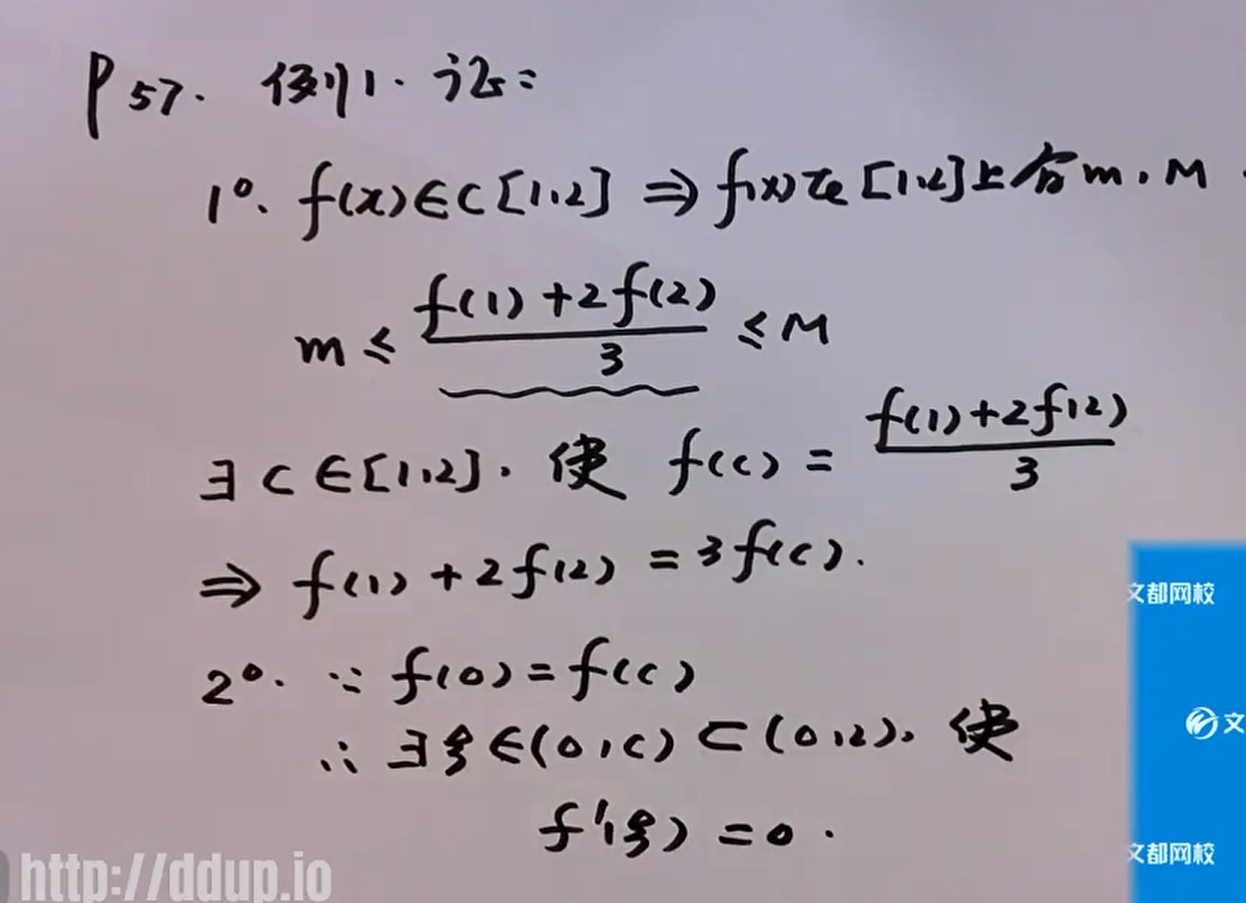 P57. 例1. 证:
1°. f(x)∈C[1,2] ⇒ f(x)在[1,2]上有m,M.
m ≤ \frac{f(1)+2f(2)}{3} ≤ M
∃ c∈[1,2]. 使 f(c) = \frac{f(1)+2f(2)}{3}
⇒ f(1)+2f(2) = 3f(c).
2°. ∵ f(0)=f(c)
∴ ∃ξ∈(0,c)⊂(0,2), 使
f'(ξ)=0.
文都网校
文
文都网校
http://ddup.io